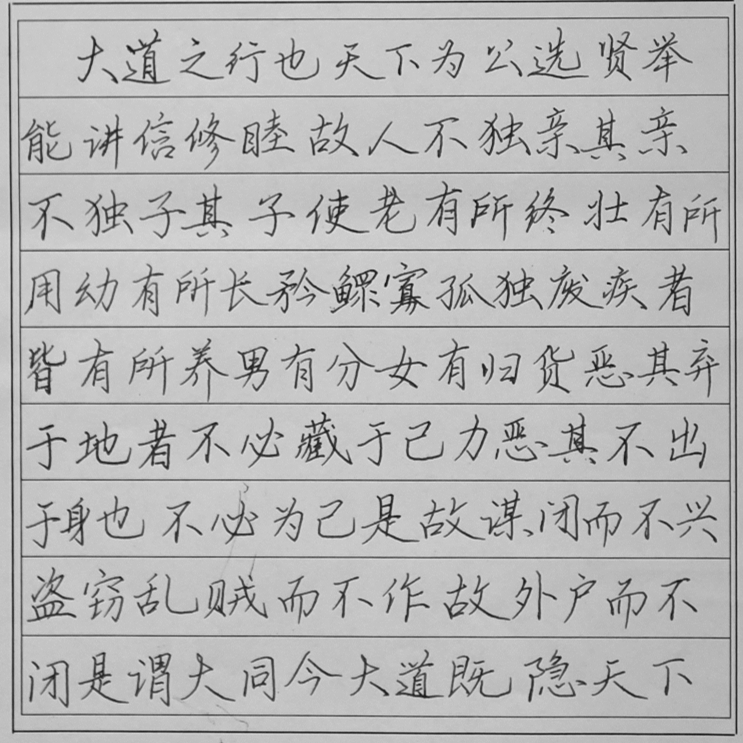 大道之行也天下为公选贤举
能讲信修睦故人不独亲其亲
不独子其子使老有所终壮有所
用幼有所长矜鳏寡孤独废疾者
皆有所养男有分女有归货恶其弃
于地者不必藏于己力恶其不出
于身也不必为己是故谋闭而不兴
盗窃乱贼而不作故外户而不
闭是谓大同今大道既隐天下